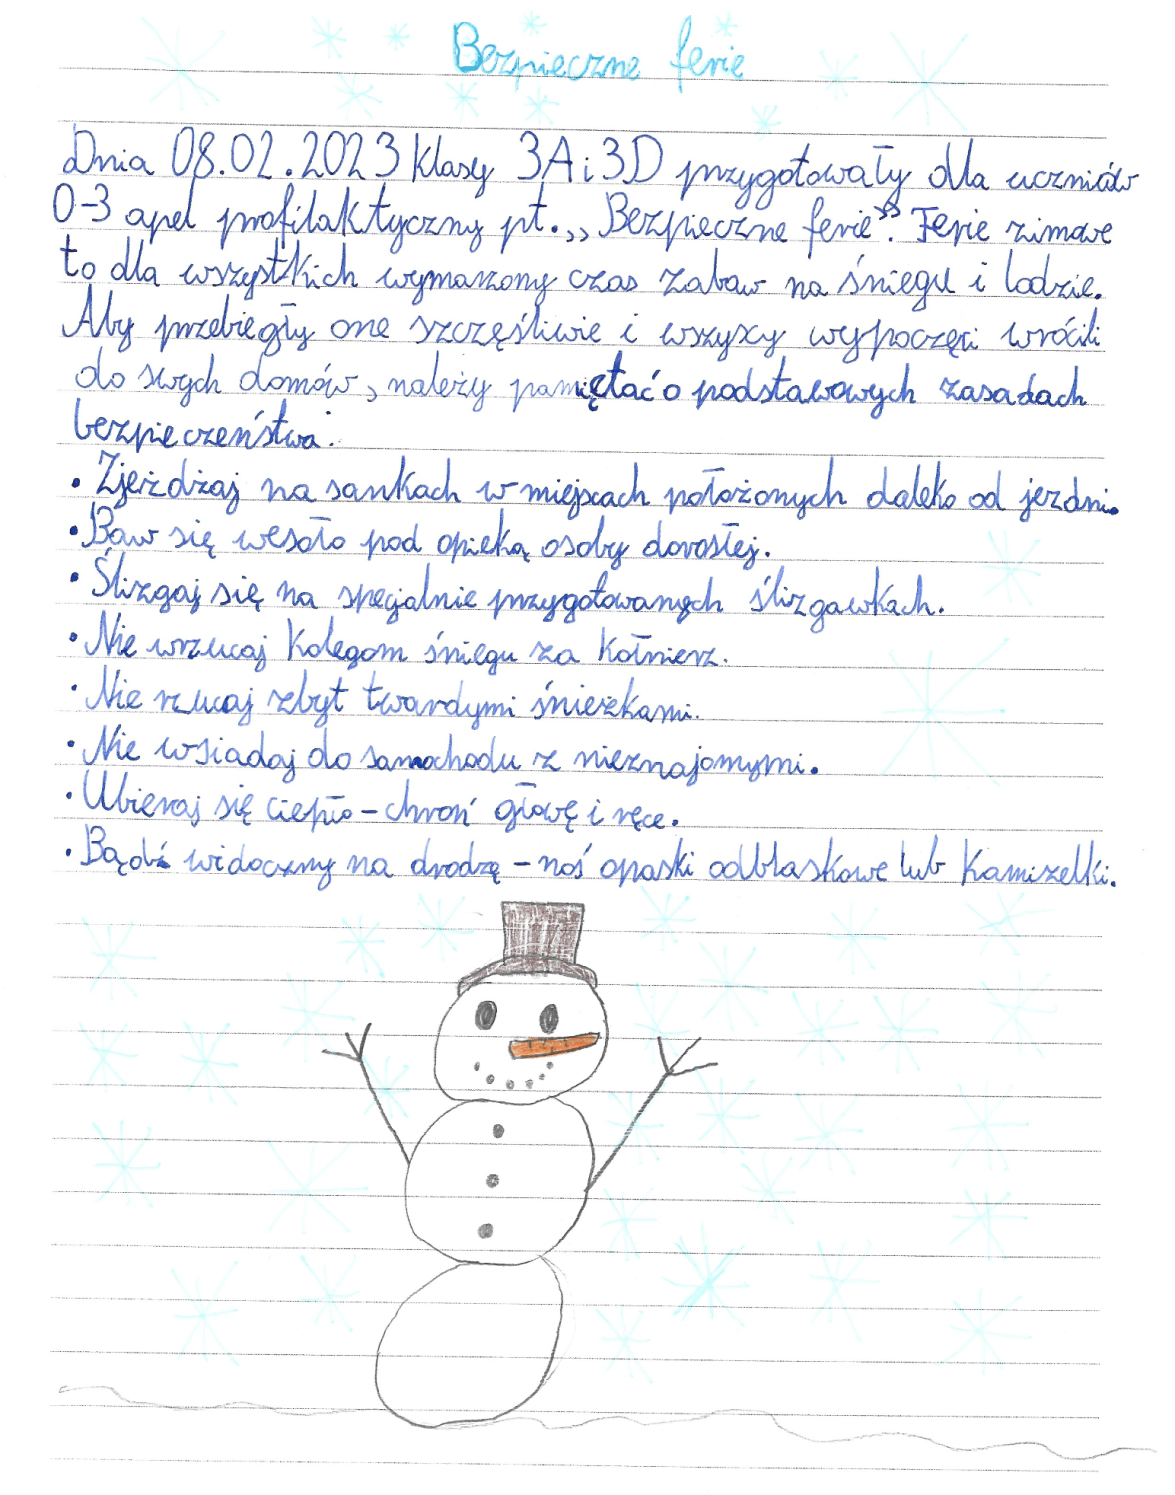 Bezpieczne ferie
Dnia 08.02.2023 klasy 3A i 3D przygotowały dla uczniów
0-3 apel profilaktyczny pt. „Bezpieczne ferie". Ferie zimowe
to dla wszystkich wymarzony czas zabaw na śniegu i lodzie.
Aby przebiegły one szczęśliwie i wszyscy wypoczęci wrócili
do swych domów, należy pamiętać o podstawowych zasadach
bezpieczeństwa.
• Zjeżdżaj na sankach w miejscach położonych daleko od jezdni.
• Baw się wesoło pod opieką osoby dorosłej.
• Ślizgaj się na specjalnie przygotowanych ślizgawkach.
• Nie wrzucaj kolegom śniegu za kołnierz.
• Nie rzucaj zbyt twardymi śnieżkami.
• Nie wsiadaj do samochodu z nieznajomymi.
• Ubieraj się ciepło - chroń głowę i ręce.
• Bądź widoczny na drodzę - noś opaski odblaskowe lub kamizelki.